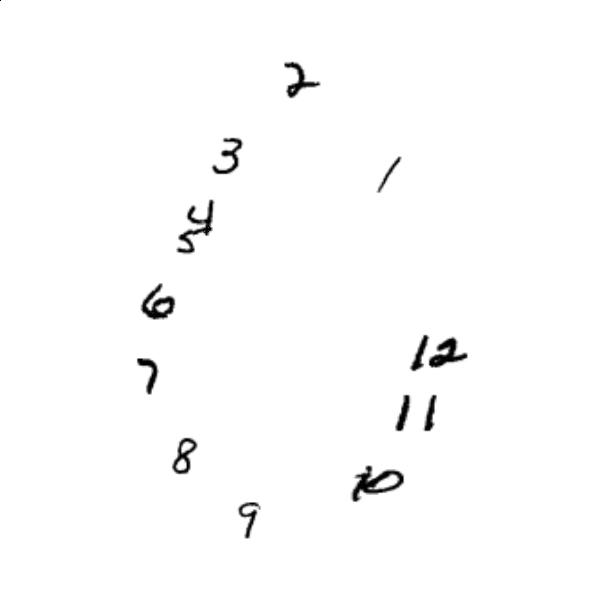 2
3
1
4
5
6
12
7
11
8
10
9